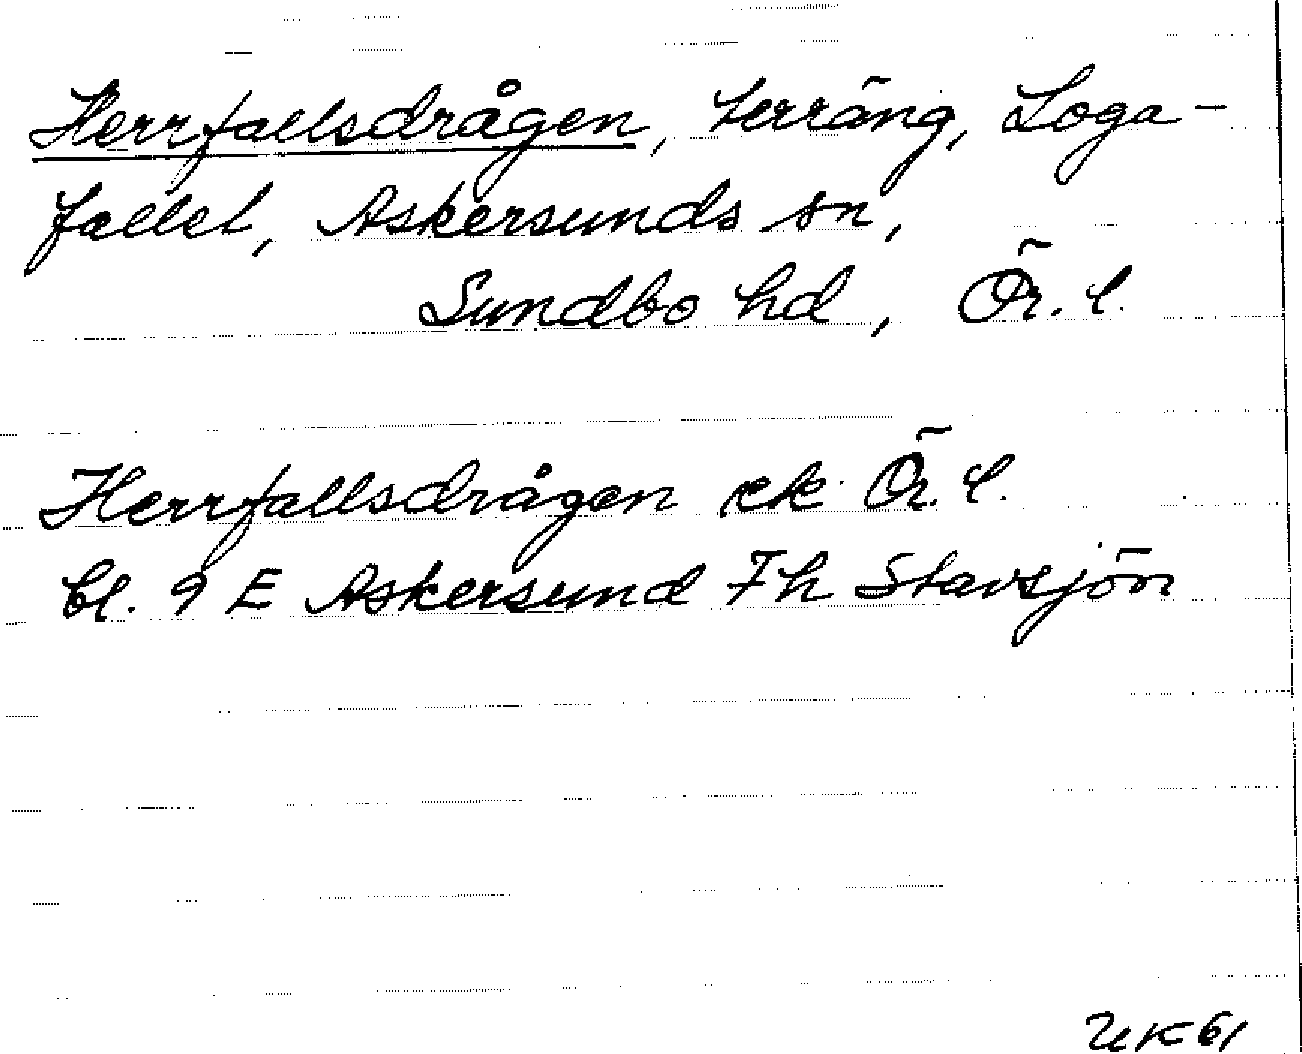 Herrfallsdrågen, terräng, Loga-
fallet, Askersunds sn,
Sundbo hd, Ör. l.
Herrfallsdrågen ek Ör. l.
bl. 9 E Askersund Fh Stavsjön
UK 61